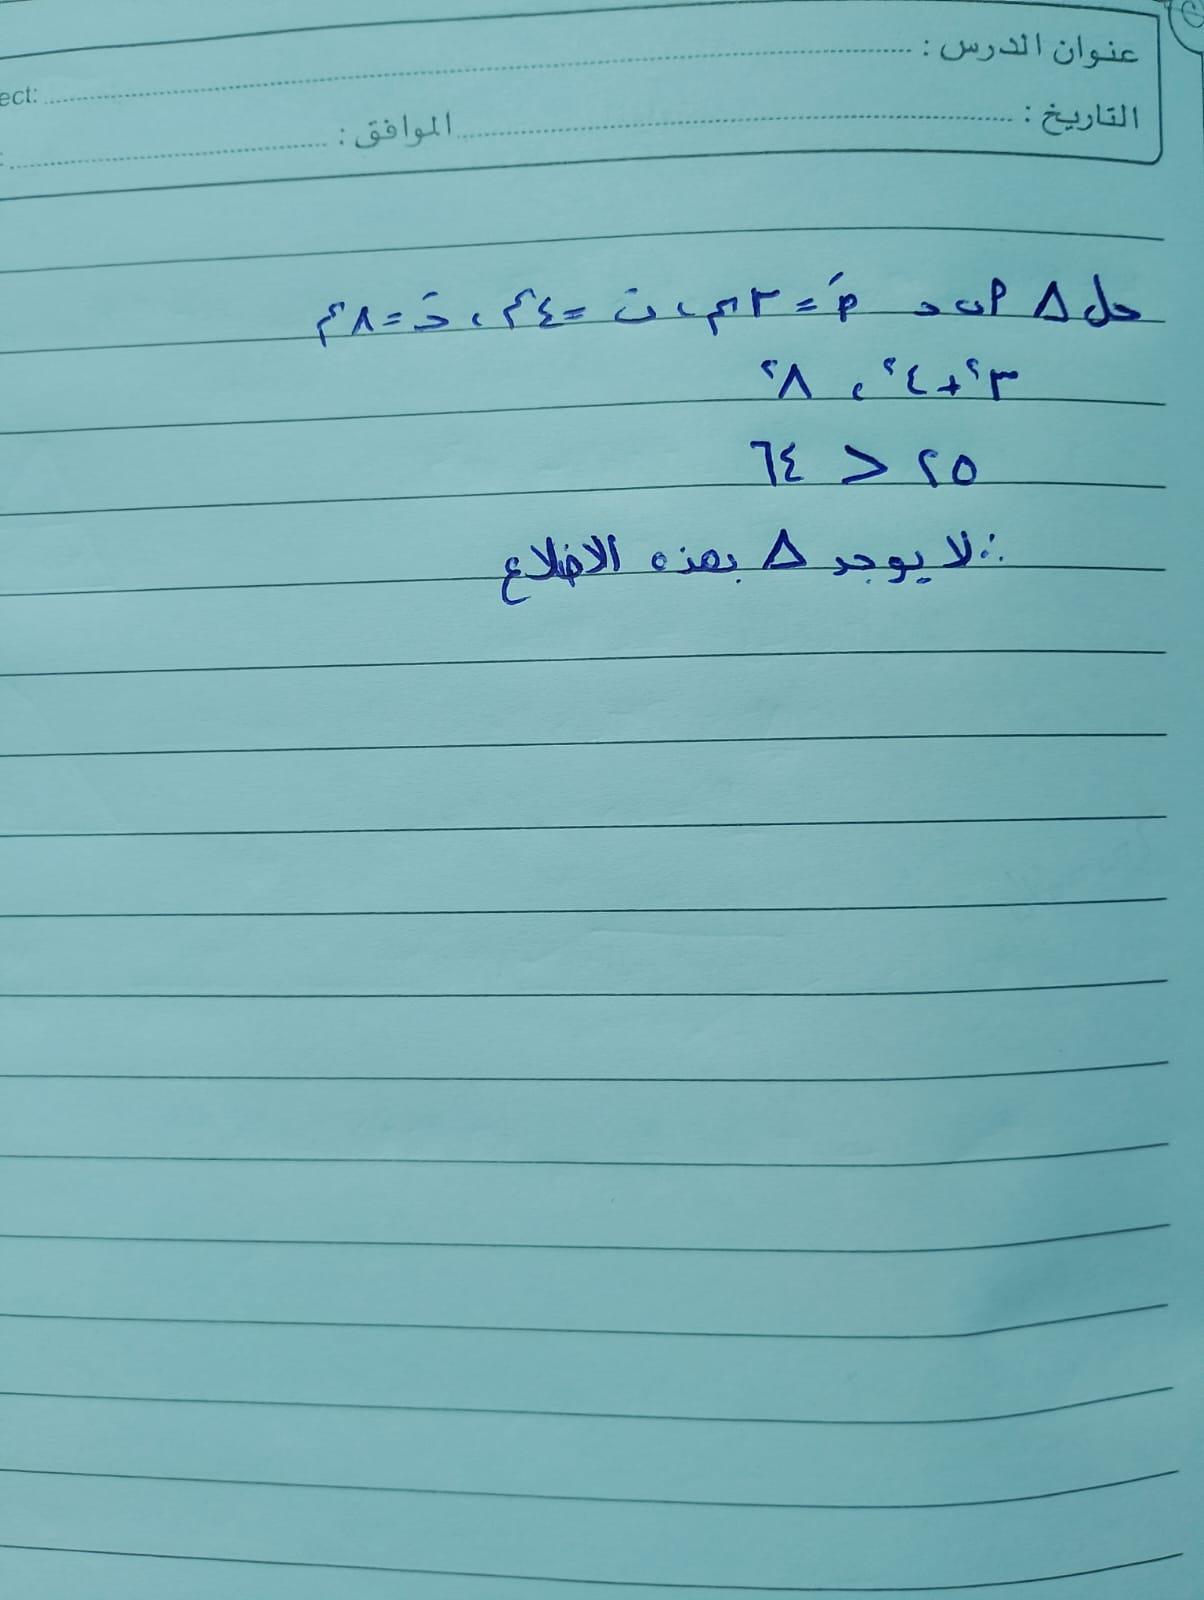 عنوان الدرس :
ect:
التاريخ : الموافق :
حل △ أ ب حـ أَ = ٣م ، بَ = ٤م ، حَـ = ٨م
٣² + ٤² ، ٨²
٢٥ > ٦٤
∴ لا يوجد △ بهذه الاضلاع